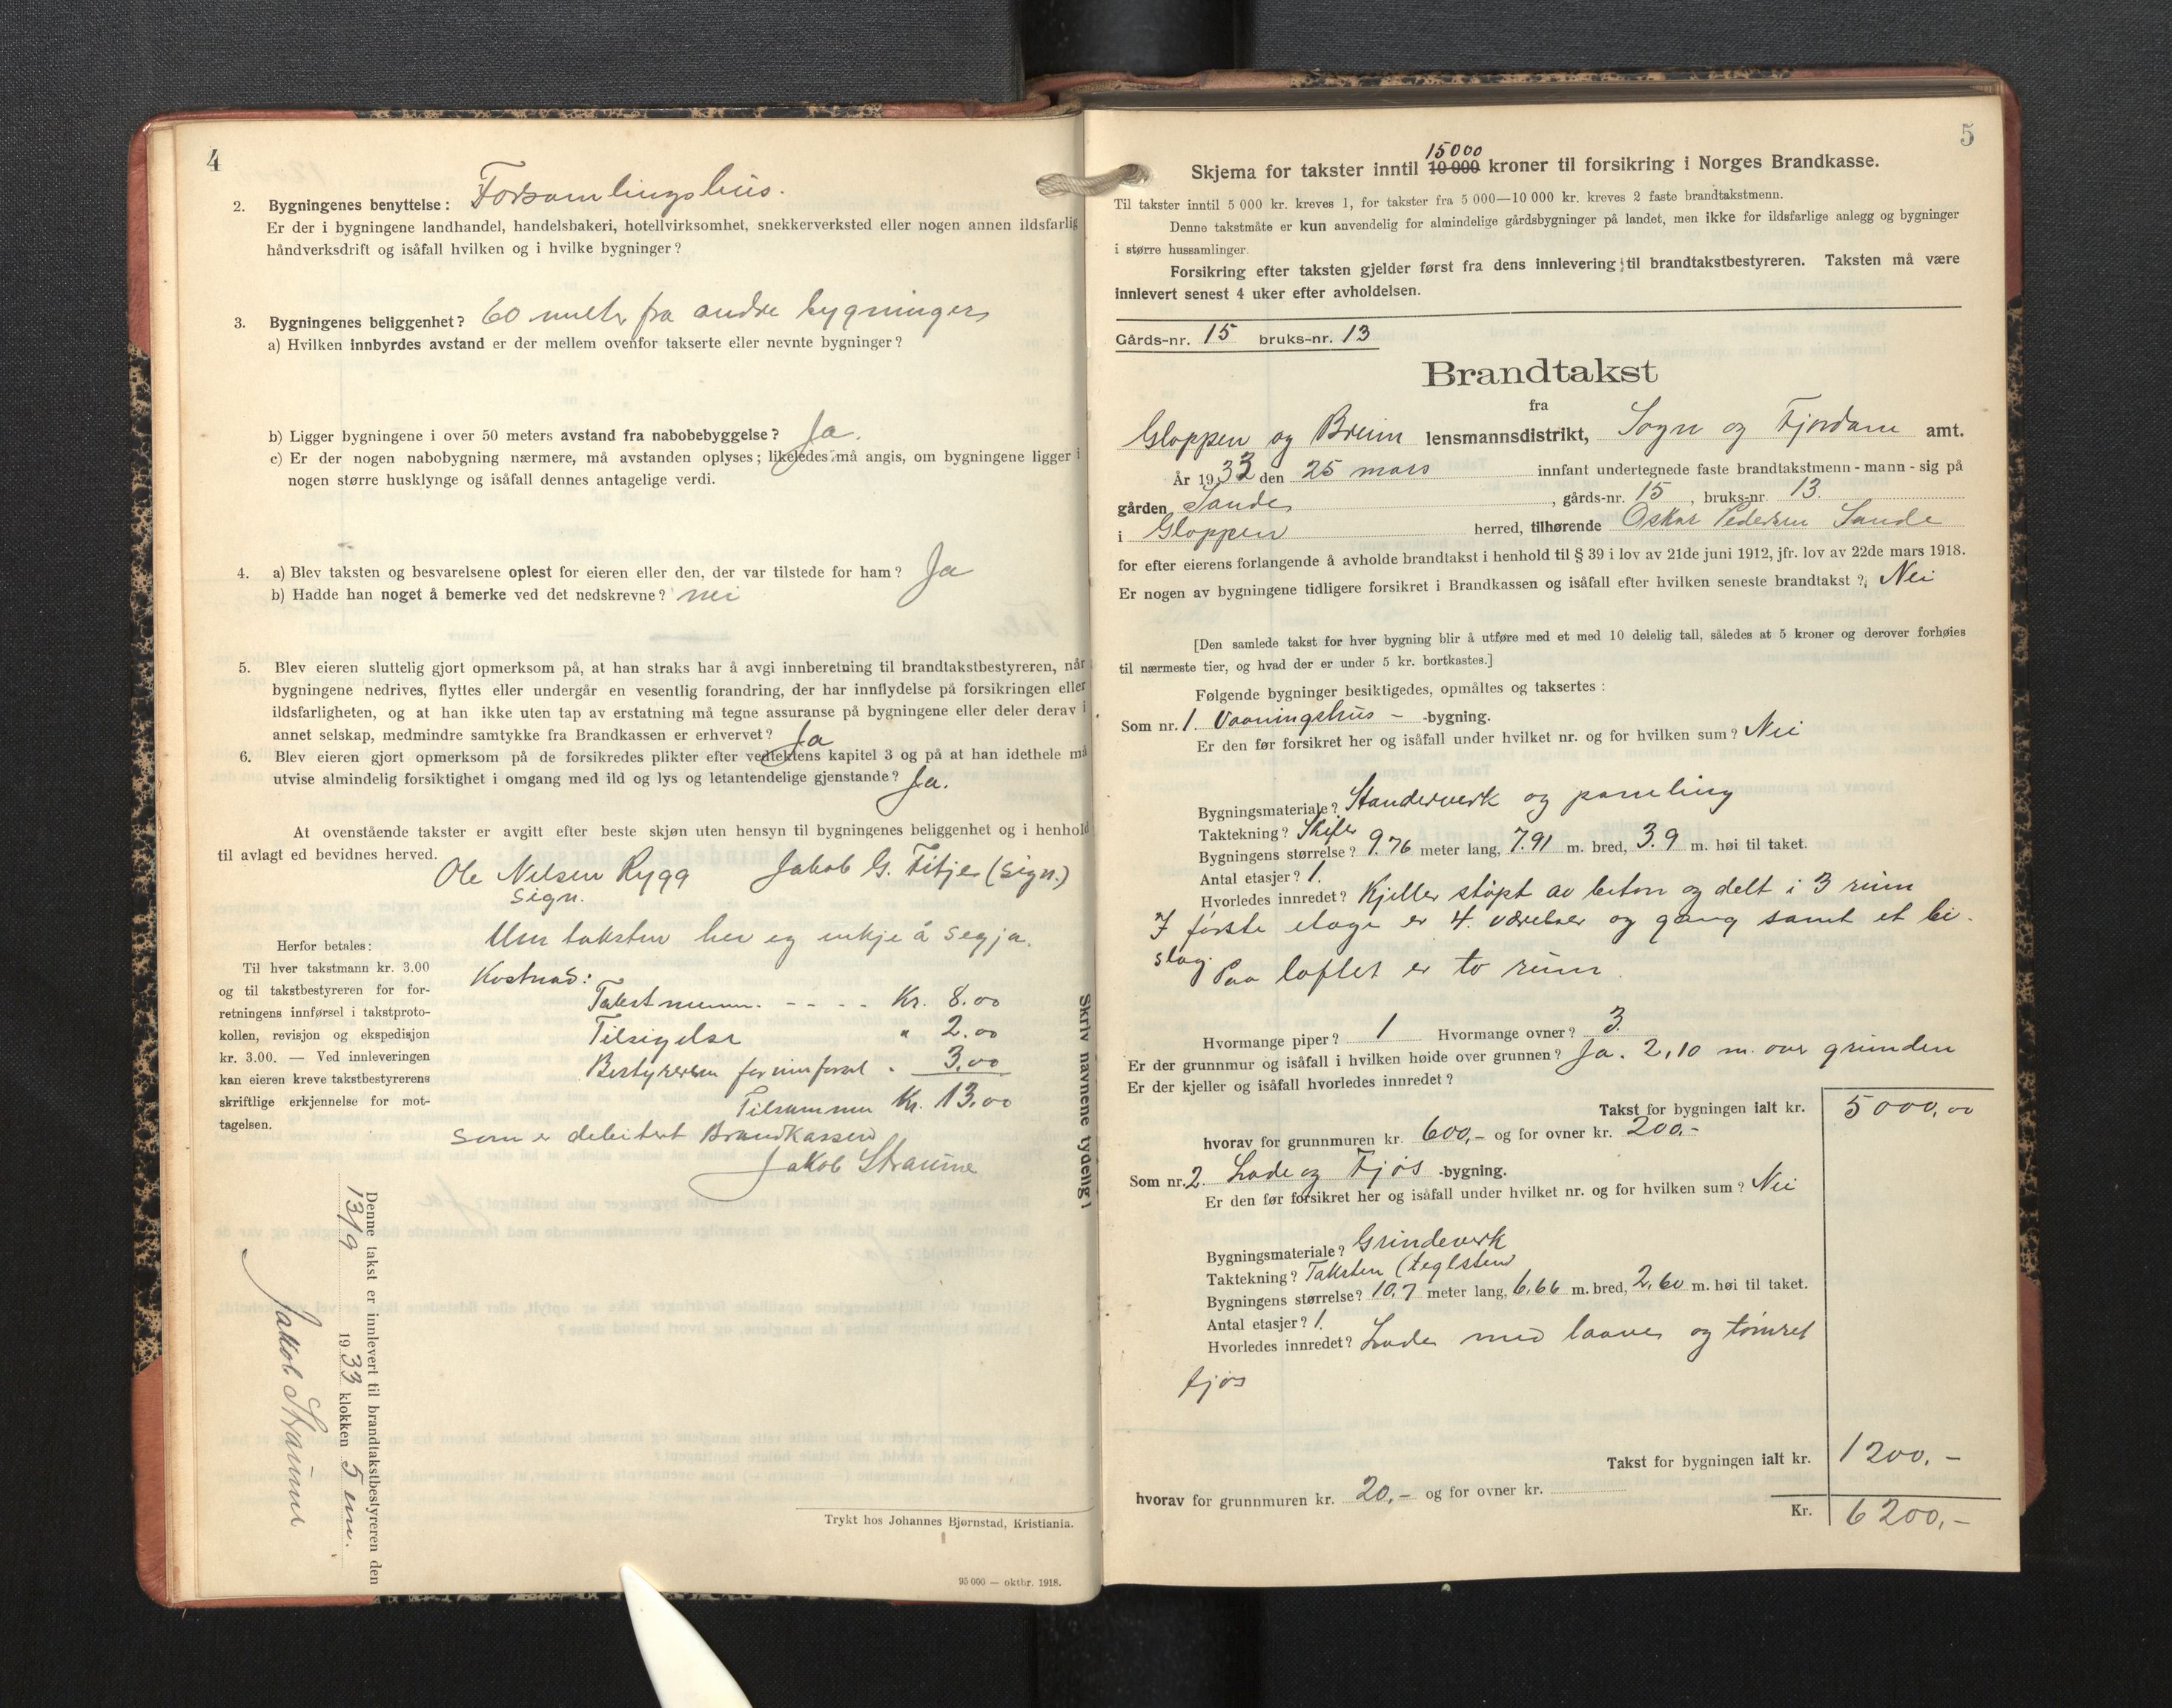 4
2. Bygningenes benyttelse: Forsamlingshus.
Er der i bygningene landhandel, handelsbakeri, hotellvirksomhet, snekkerverksted eller nogen annen ildsfarlig
håndverksdrift og isåfall hvilken og i hvilke bygninger?
3. Bygningenes beliggenhet? 60 meter fra andre bygninger
a) Hvilken innbyrdes avstand er der mellem ovenfor takserte eller nevnte bygninger?
b) Ligger bygningene i over 50 meters avstand fra nabobebyggelse? Ja.
c) Er der nogen nabobygning nærmere, må avstanden oplyses; likeledes må angis, om bygningene ligger i
nogen større husklynge og isåfall dennes antagelige verdi.
4. a) Blev taksten og besvarelsene oplest for eieren eller den, der var tilstede for ham? Ja
b) Hadde han noget å bemerke ved det nedskrevne? nei
5. Blev eieren sluttelig gjort opmerksom på, at han straks har å avgi innberetning til brandtakstbestyreren, når
bygningene nedrives, flyttes eller undergår en vesentlig forandring, der har innflydelse på forsikringen eller
ildsfarligheten, og at han ikke uten tap av erstatning må tegne assuranse på bygningene eller deler derav i
annet selskap, medmindre samtykke fra Brandkassen er erhvervet? Ja
6. Blev eieren gjort opmerksom på de forsikredes plikter efter vedtektens kapitel 3 og på at han idethele må
utvise almindelig forsiktighet i omgang med ild og lys og letantendelige gjenstande? Ja.
At ovenstående takster er avgitt efter beste skjøn uten hensyn til bygningenes beliggenhet og i henhold
til avlagt ed bevidnes herved.
Ole Nilsen Rygg Jakob G. Fitje (sign.)
Sign.
Um taksten hev eg inkje å segja.
Kostnad:
Takstmenn. - - - - Kr. 8.00
Tilsigelse " 2.00
Bestyreren for innførsel " 3.00
Tilsammen Kr. 13.00
som er debitert Brandkassen
Jakob Straume
Herfor betales:
Til hver takstmann kr. 3.00
og til takstbestyreren for for-
retningens innførsel i takstproto-
kollen, revisjon og ekspedisjon
kr. 3.00. — Ved innleveringen
kan eieren kreve takstbestyrerens
skriftlige erkjennelse for mot-
tagelsen.
Denne takst er innlevert til brandtakstbestyreren den
13/9 1933 klokken 5 em.
Jakob Straume
Skriv navnene tydelig!
Trykt hos Johannes Bjørnstad, Kristiania.
95 000 — oktbr. 1918.
5
15000
Skjema for takster inntil 10 000 kroner til forsikring i Norges Brandkasse.
Til takster inntil 5 000 kr. kreves 1, for takster fra 5 000—10 000 kr. kreves 2 faste brandtakstmenn.
Denne takstmåte er kun anvendelig for almindelige gårdsbygninger på landet, men ikke for ildsfarlige anlegg og bygninger
i større hussamlinger.
Forsikring efter taksten gjelder først fra dens innlevering til brandtakstbestyreren. Taksten må være
innlevert senest 4 uker efter avholdelsen.
Gårds-nr. 15 bruks-nr. 13
Brandtakst
fra
Gloppen og Breim lensmannsdistrikt, Sogn og Fjordane amt.
År 1933 den 25 mars innfant undertegnede faste brandtakstmenn - mann - sig på
gården Sande, gårds-nr. 15, bruks-nr. 13.
i Gloppen herred, tilhørende Oskar Pedersen Sande
for efter eierens forlangende å avholde brandtakst i henhold til § 39 i lov av 21de juni 1912, jfr. lov av 22de mars 1918.
Er nogen av bygningene tidligere forsikret i Brandkassen og isåfall efter hvilken seneste brandtakst? Nei
[Den samlede takst for hver bygning blir å utføre med et med 10 delelig tall, således at 5 kroner og derover forhøies
til nærmeste tier, og hvad der er under 5 kr. bortkastes.]
Følgende bygninger besiktigedes, opmåltes og taksertes:
Som nr. 1 Vaaningshus - -bygning.
Er den før forsikret her og isåfall under hvilket nr. og for hvilken sum? Nei
Bygningsmateriale? Standerverk og paneling
Taktekning? Skifer
Bygningens størrelse? 9.76 meter lang, 7.91 m. bred, 3.9 m. høi til taket.
Antal etasjer? 1.
Hvorledes innredet? Kjeller støpt av beton og delt i 3 rum
I første etage er 4. værelser og gang samt et bi-
slag. Paa loftet er to rum.
Hvormange piper? 1 Hvormange ovner? 3.
Er der grunnmur og isåfall i hvilken høide over grunnen? Ja. 2,10 m. over grunden
Er der kjeller og isåfall hvorledes innredet?
Takst for bygningen ialt kr. 5000,00
hvorav for grunnmuren kr. 600,- og for ovner kr. 200,-
Som nr. 2. Lade og Fjøs -bygning.
Er den før forsikret her og isåfall under hvilket nr. og for hvilken sum? Nei
Bygningsmateriale? Grindeverk
Taktekning? Taksten (teglsten)
Bygningens størrelse? 10,7 meter lang, 6,66 m. bred, 2,60 m. høi til taket.
Antal etasjer? 1.
Hvorledes innredet? Lade med laave og tømret
fjøs
Takst for bygningen ialt kr. 1200,-
hvorav for grunnmuren kr. 20,- og for ovner kr.
Kr. 6200,-